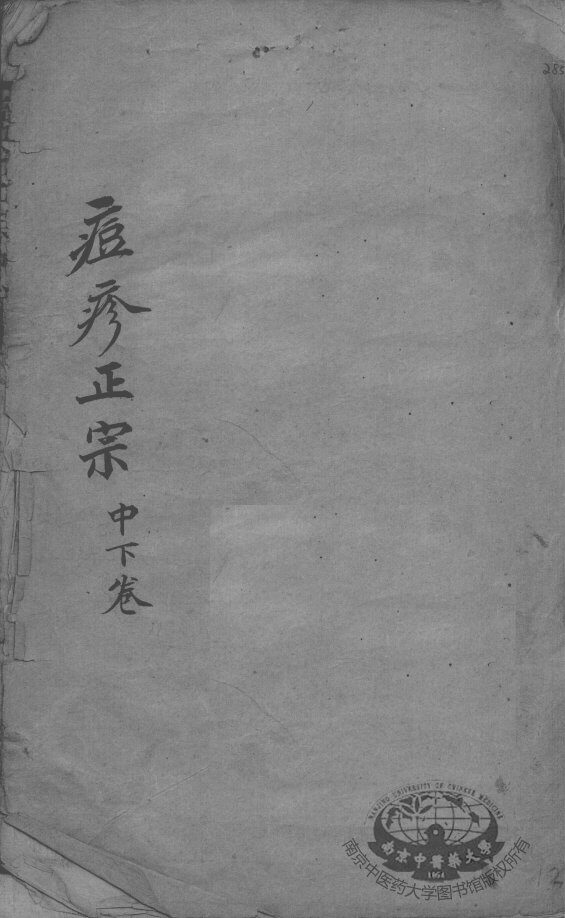 痘疹正宗
中下卷
285
NANJING UNIVERSITY OF CHINESE MEDICINE
南京中醫藥大學
1954
南京中医药大学图书馆版权所有